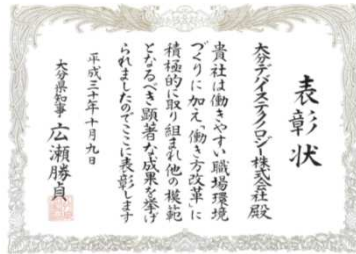 表彰状
大分デバイステクノロジー株式会社殿
貴社は働きやすい職場環境
づくりに加え「働き方改革」に
積極的に取り組まれ他の模範
となるべき顕著な成果を挙げ
られましたのでここに表彰します
平成三十年十月九日
大分県知事 広瀬勝貞